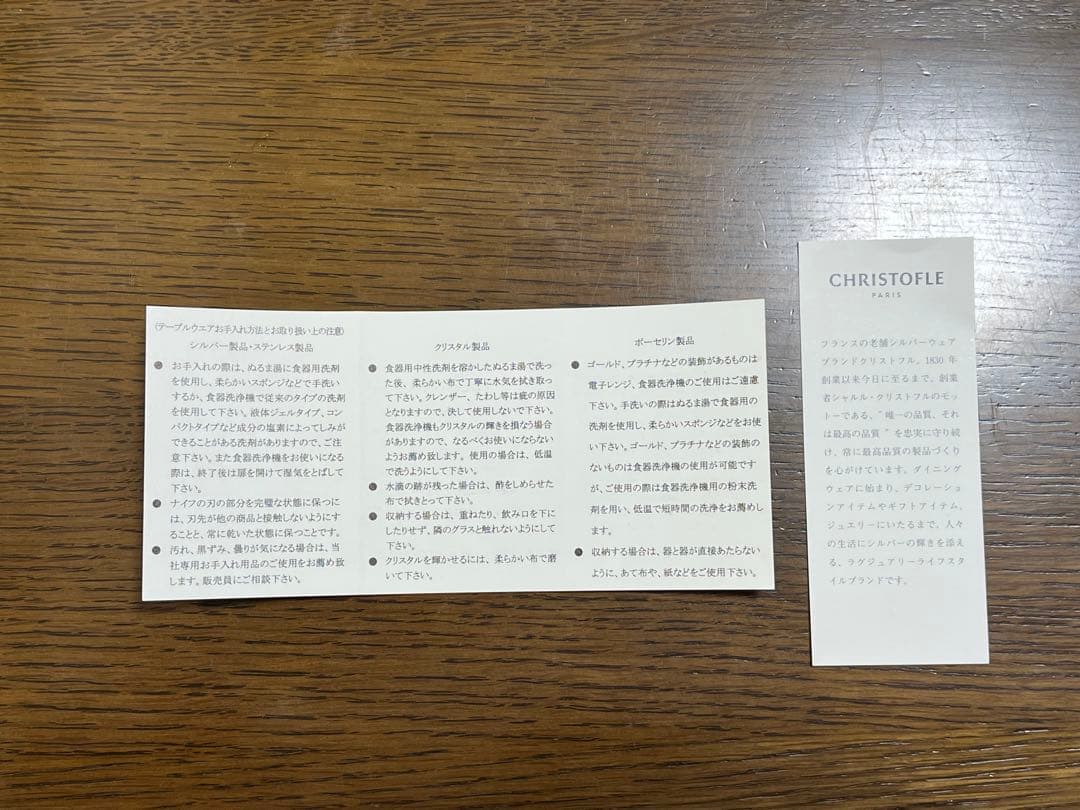 (テーブルウエアお手入れ方法とお取り扱い上の注意)
シルバー製品・ステンレス製品
● お手入れの際は、ぬるま湯に食器用洗剤
を使用し、柔らかいスポンジなどで手洗い
するか、食器洗浄機で従来のタイプの洗剤
を使用して下さい。液体ジェルタイプ、コン
パクトタイプなど成分の塩素によってしみが
できることがある洗剤がありますので、ご注
意下さい。また食器洗浄機をお使いになる
際は、終了後は扉を開けて湿気をとばして
下さい。
● ナイフの刃の部分を完璧な状態に保つに
は、刃先が他の商品と接触しないようにす
ることと、常に乾いた状態に保つことです。
● 汚れ、黒ずみ、曇りが気になる場合は、当
社専用お手入れ用品のご使用をお薦め致
します。販売員にご相談下さい。
クリスタル製品
● 食器用中性洗剤を溶かしたぬるま湯で洗っ
た後、柔らかい布で丁寧に水気を拭き取っ
て下さい。クレンザー、たわし等は疵の原因
となりますので、決して使用しないで下さい。
食器洗浄機もクリスタルの輝きを損なう場合
がありますので、なるべくお使いにならない
ようお薦め致します。使用の場合は、低温
で洗うようにして下さい。
● 水滴の跡が残った場合は、酢をしめらせた
布で拭きとって下さい。
● 収納する場合は、重ねたり、飲み口を下に
したりせず、隣のグラスと触れないようにして
下さい。
● クリスタルを輝かせるには、柔らかい布で磨
いて下さい。
ポーセリン製品
● ゴールド、プラチナなどの装飾があるものは
電子レンジ、食器洗浄機のご使用はご遠慮
下さい。手洗いの際はぬるま湯で食器用の
洗剤を使用し、柔らかいスポンジなどをお使
い下さい。ゴールド、プラチナなどの装飾の
ないものは食器洗浄機の使用が可能です
が、ご使用の際は食器洗浄機用の粉末洗
剤を用い、低温で短時間の洗浄をお薦めし
ます。
● 収納する場合は、器と器が直接あたらない
ように、あて布や、紙などをご使用下さい。
CHRISTOFLE
PARIS
フランスの老舗シルバーウェア
ブランドクリストフル。1830 年
創業以来今日に至るまで、創業
者シャルル・クリストフルのモッ
トーである、"唯一の品質、それ
は最高の品質"を忠実に守り続
け、常に最高品質の製品づくり
を心がけています。ダイニング
ウェアに始まり、デコレーショ
ンアイテムやギフトアイテム、
ジュエリーにいたるまで、人々
の生活にシルバーの輝きを添え
る、ラグジュアリーライフスタ
イルブランドです。